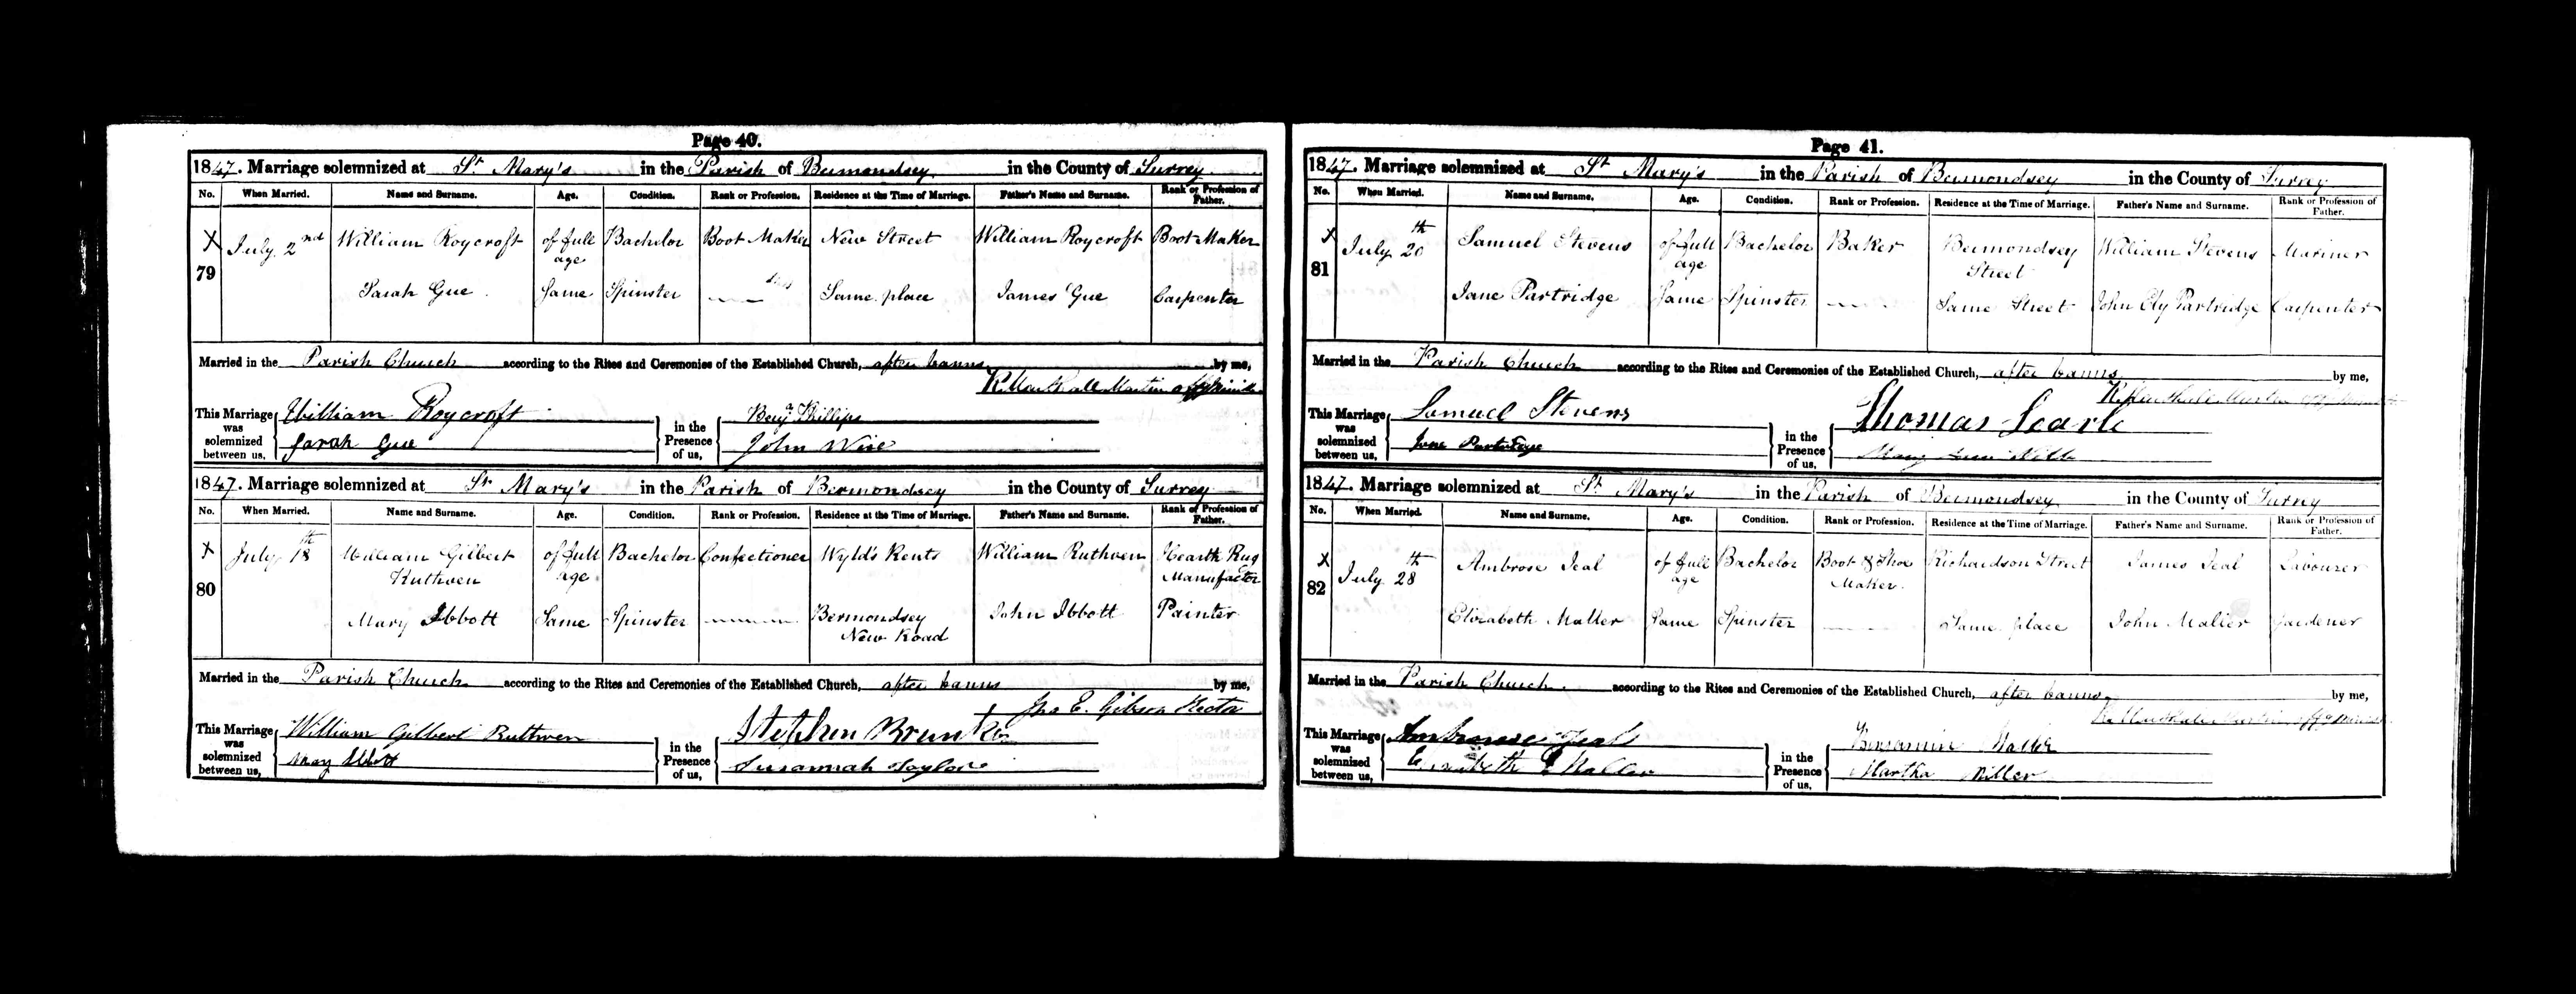 Page 40.
1847. Marriage solemnized at St. Mary's in the Parish of Bermondsey in the County of Surrey
No. When Married. Name and Surname. Age. Condition. Rank or Profession. Residence at the Time of Marriage. Father's Name and Surname. Rank or Profession of Father.
X 79 July 2nd William Roycroft of full age Bachelor Boot Maker New Street William Roycroft Boot Maker
Sarah Gue Same Spinster Same place James Gue Carpenter
Married in the Parish Church according to the Rites and Ceremonies of the Established Church, after banns by me,
R. Marshall Martin
This Marriage was solemnized between us, William Roycroft in the Presence of us, Benjn Phillips
Sarah Gue John Wise
1847. Marriage solemnized at St. Mary's in the Parish of Bermondsey in the County of Surrey
No. When Married. Name and Surname. Age. Condition. Rank or Profession. Residence at the Time of Marriage. Father's Name and Surname. Rank or Profession of Father.
X 80 July 18th William Gilbert Ruthven of full age Bachelor Confectioner Wyld's Rents William Ruthven Hearth Rug Manufactor
Mary Ibbott Same Spinster Bermondsey New Road John Ibbott Painter
Married in the Parish Church according to the Rites and Ceremonies of the Established Church, after banns by me,
Jno E. Gibson Rector
This Marriage was solemnized between us, William Gilbert Ruthven in the Presence of us, Stephen
Mary Ibbott Susannah Taylor
Page 41.
1847. Marriage solemnized at St. Mary's in the Parish of Bermondsey in the County of Surrey
No. When Married. Name and Surname. Age. Condition. Rank or Profession. Residence at the Time of Marriage. Father's Name and Surname. Rank or Profession of Father.
X 81 July 20th Samuel Stevens of full age Bachelor Baker Bermondsey Street William Stevens Mariner
Jane Partridge Same Spinster Same Street John Ely Partridge Carpenter
Married in the Parish Church according to the Rites and Ceremonies of the Established Church, after banns by me,
R. Marshall Martin
This Marriage was solemnized between us, Samuel Stevens in the Presence of us, Thomas Searle
Jane Partridge Mary
1847. Marriage solemnized at St. Mary's in the Parish of Bermondsey in the County of Surrey
No. When Married. Name and Surname. Age. Condition. Rank or Profession. Residence at the Time of Marriage. Father's Name and Surname. Rank or Profession of Father.
X 82 July 28th Ambrose Teal of full age Bachelor Boot & Shoe Maker Richardson Street James Teal Labourer
Elizabeth Maller Same Spinster Same place John Maller Gardener
Married in the Parish Church according to the Rites and Ceremonies of the Established Church, after banns by me,
R. Marshall Martin
This Marriage was solemnized between us, Ambrose Teal in the Presence of us, Benjamin Maller
Elizabeth Maller Martha Miller